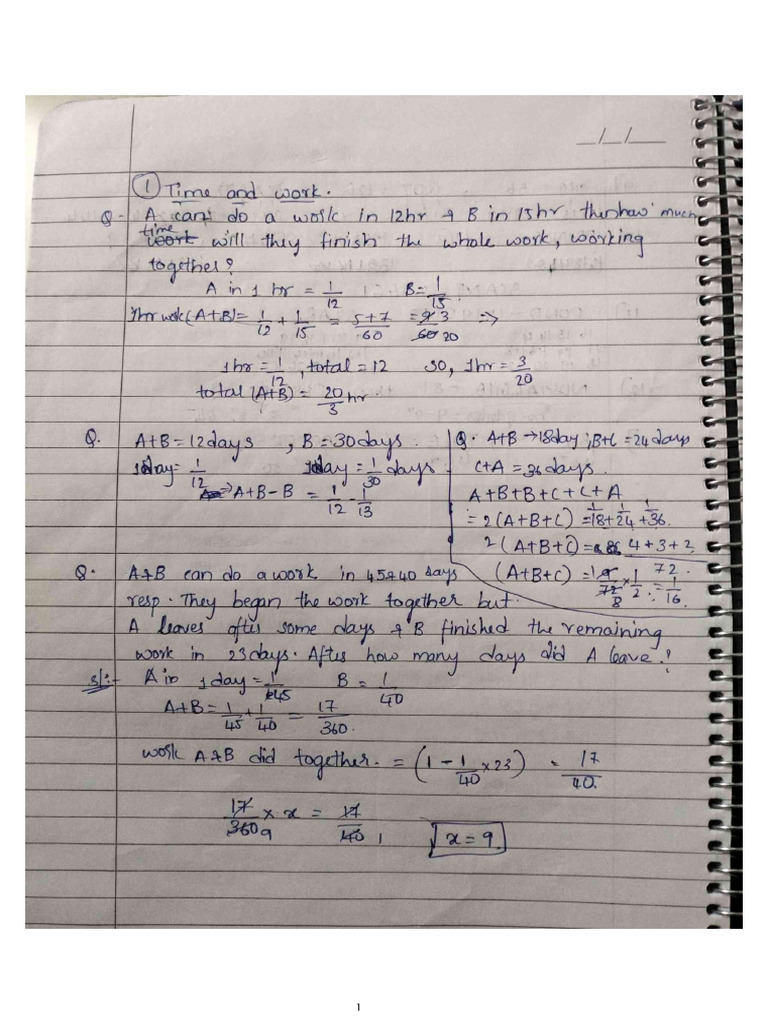 _/_/__
① Time and work.
Q- A can do a work in 12hr & B in 15hr then how much
time
work will they finish the whole work, working
together?
A in 1 hr = 1/12 B = 1/15.
1hr work (A+B) = 1/12 + 1/15 = 5+7/60 = 9/60 3/20 =>
1hr = 1/12, total = 12 so, 1hr = 3/20
total (A+B) = 20/3 hr.
Q. A+B = 12 days, B = 30 days.
1day = 1/12 1day = 1/30 days
=> A+B-B = 1/12 - 1/13
Q. A+B → 18day, B+C = 24 days
C+A = 36 days.
A+B+B+C+C+A
= 2(A+B+C) = 1/18 + 1/24 + 1/36.
2(A+B+C) = 4+3+2/72.
(A+B+C) = 1 9/72 8 × 1/2 = 1/16
Q. A & B can do a work in 45 & 40 days
resp. They began the work together but
A leaves after some days & B finished the remaining
work in 23 days. After how many days did A leave.?
Sl:- A in 1 day = 1/45 B = 1/40
A+B = 1/45 + 1/40 = 17/360.
work A & B did together. = (1 - 1/40 × 23) = 17/40.
17/360 9 × x = 17/40 1 x = 9.
1